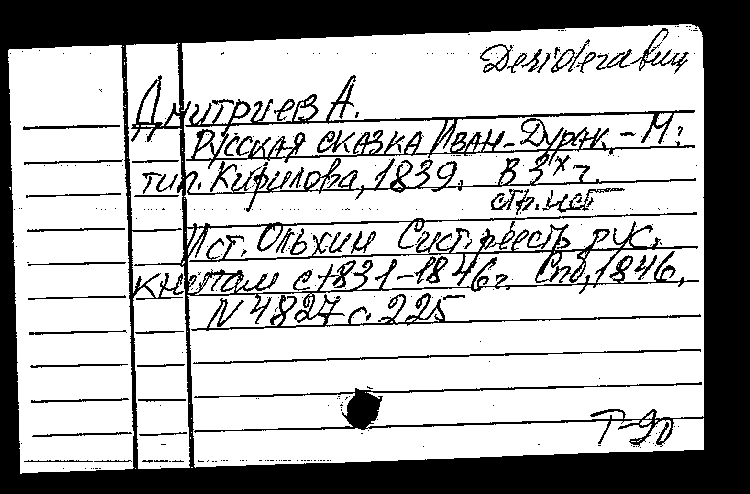 Desiderat
Дмитриев А.
Русская сказка Иван-Дурак. - М:
тип. Кирилова, 1839. в 3х ч.
стр. нет
Ист. Ольхин Сист. реестр рус.
книгам с 1831-1846г. Спб, 1846,
N 4827 с. 225
Т-90